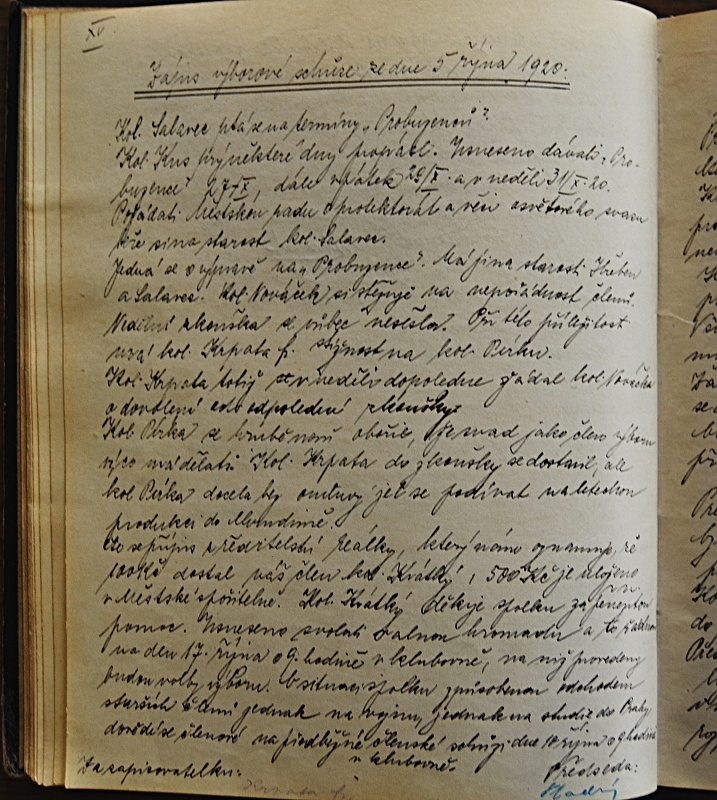 XV.
Zápis výborové schůze ze dne 5 října 1920.
Kol. Salavec ptá se na termíny „Probuzenců".
Kol. Kus prý některé dny propadl. Usneseno dávati „Pro-
buzence" 27/X, dále v pátek 29/X. a v neděli 31/X. 20.
Požádati Městskou radu o protektorát a věci osvětového svazu
bře si na starost kol. Salavec.
Jedná se o výpravě na „Probuzence". Má ji na starosti
a Salavec. Kol. Nováček si stěžuje na nepořádnost členů.
Nedělní zkouška se vůbec nesešla. Při této příležitosti
kol. Krpata f. stížnost na kol. Pírku.
Kol. Krpata totiž v neděli dopoledne žádal kol. Nováčka
o dovolení odpolední zkoušky.
Kol. Pírka se hrubě obořil, že snad jako člen výboru
víc má dělati. Kol. Krpata do zkoušky se dostavil, ale
kol. Pírka docela bez omluvy jel se podívat na leteckou
produkci do
Čte se přípis ředitelství reálky, který nám oznamuje, že
100 Kč dostal náš člen kol. Krátký, 500 Kč je uloženo
v Městské spořitelně. Kol. Krátký děkuje spolku za peněžitou
pomoc. Usneseno svolati valnou hromadu a to
na den 17. října o 9. hodině v klubovně, na níž provedeny
budou volby výboru. O situaci spolku způsobenou odchodem
starších členů jednak na vojnu, jednak na studie do Prahy
dovědí se členové na předběžné členské schůzi dne 10 října o 9 hodině
v klubovně.
Za zapisovatelku: Předseda:
Krpata f.